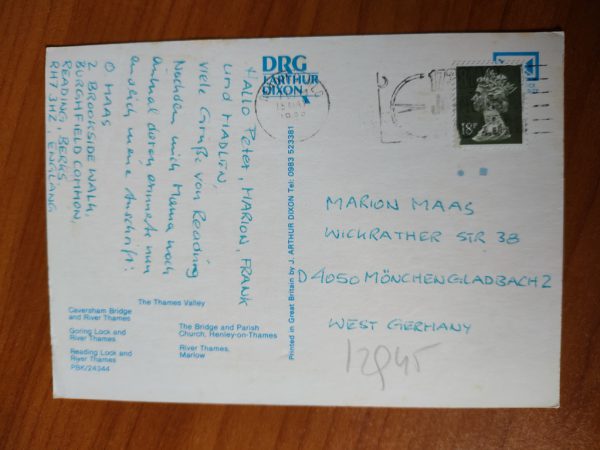 DRG
J. ARTHUR
DIXON
Hallo Peter, MARION, FRANK
und MADLEN,
viele Grüße von Reading
Nachdem mich Mama noch
einmal daran erinnerte nun
endlich meine Anschrift:
O MAAS
2 BROOKSIDE WALK,
BURGHFIELD COMMON,
READING, BERKS.
RH7 3HZ, ENGLAND
The Thames Valley
Caversham Bridge
and River Thames
Goring Lock and
River Thames
Reading Lock and
River Thames
PBK/24344
The Bridge and Parish
Church, Henley-on-Thames
River Thames,
Marlow
Printed in Great Britain by J. ARTHUR DIXON Tel: 0983 523381
18P
MARION MAAS
WICKRATHER STR 38
D4050 MÖNCHENGLADBACH 2
WEST GERMANY